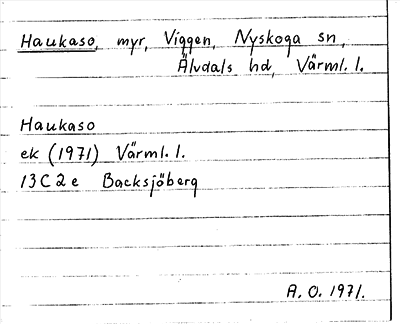 Haukaso, myr, Viggen, Nyskoga sn,
Älvdals hd, Värml. l.
Haukaso
ek (1971) Värml. l.
13C2e Backsjöberg
A. O. 1971.